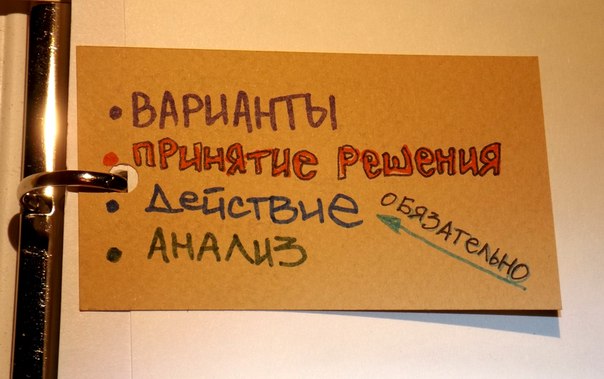 • ВАРИАНТЫ
• ПРИНЯТИЕ РЕШЕНИЯ
• Действие
• АНАЛИЗ
ОБЯЗАТЕЛЬНО